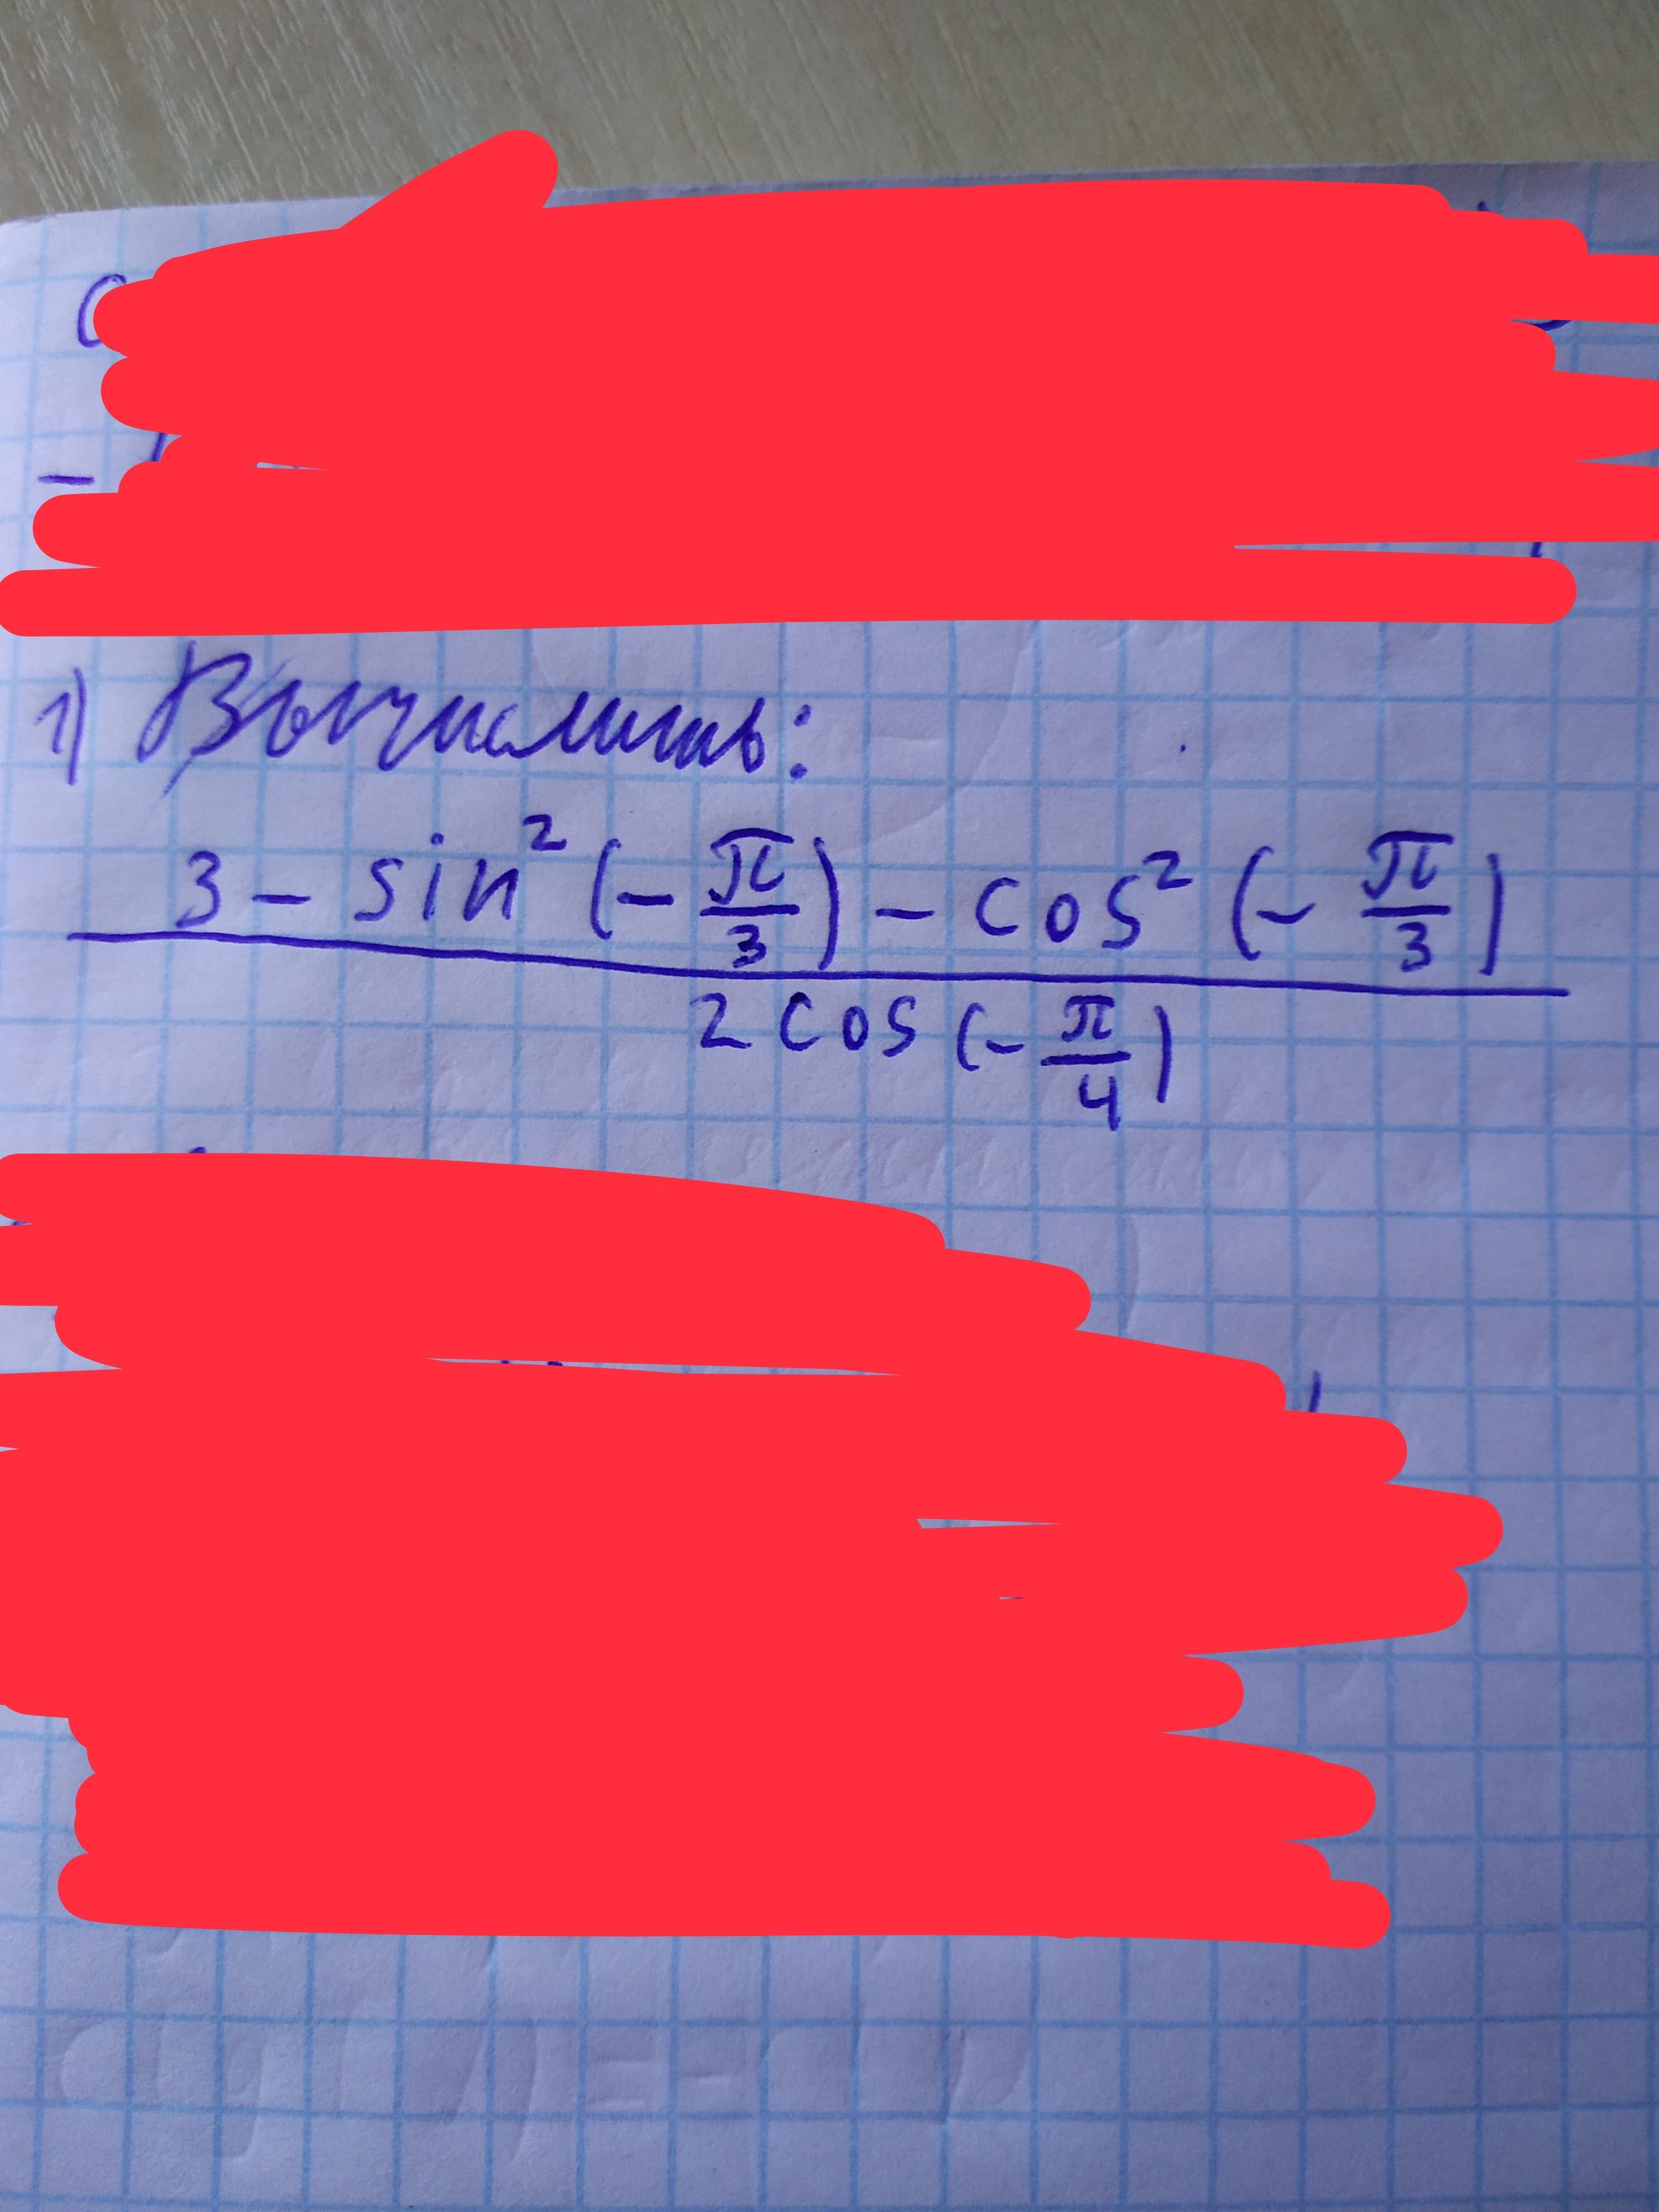 1) Вычислить:
3 - sin² (- π/3) - cos² (- π/3)
2 cos (- π/4)